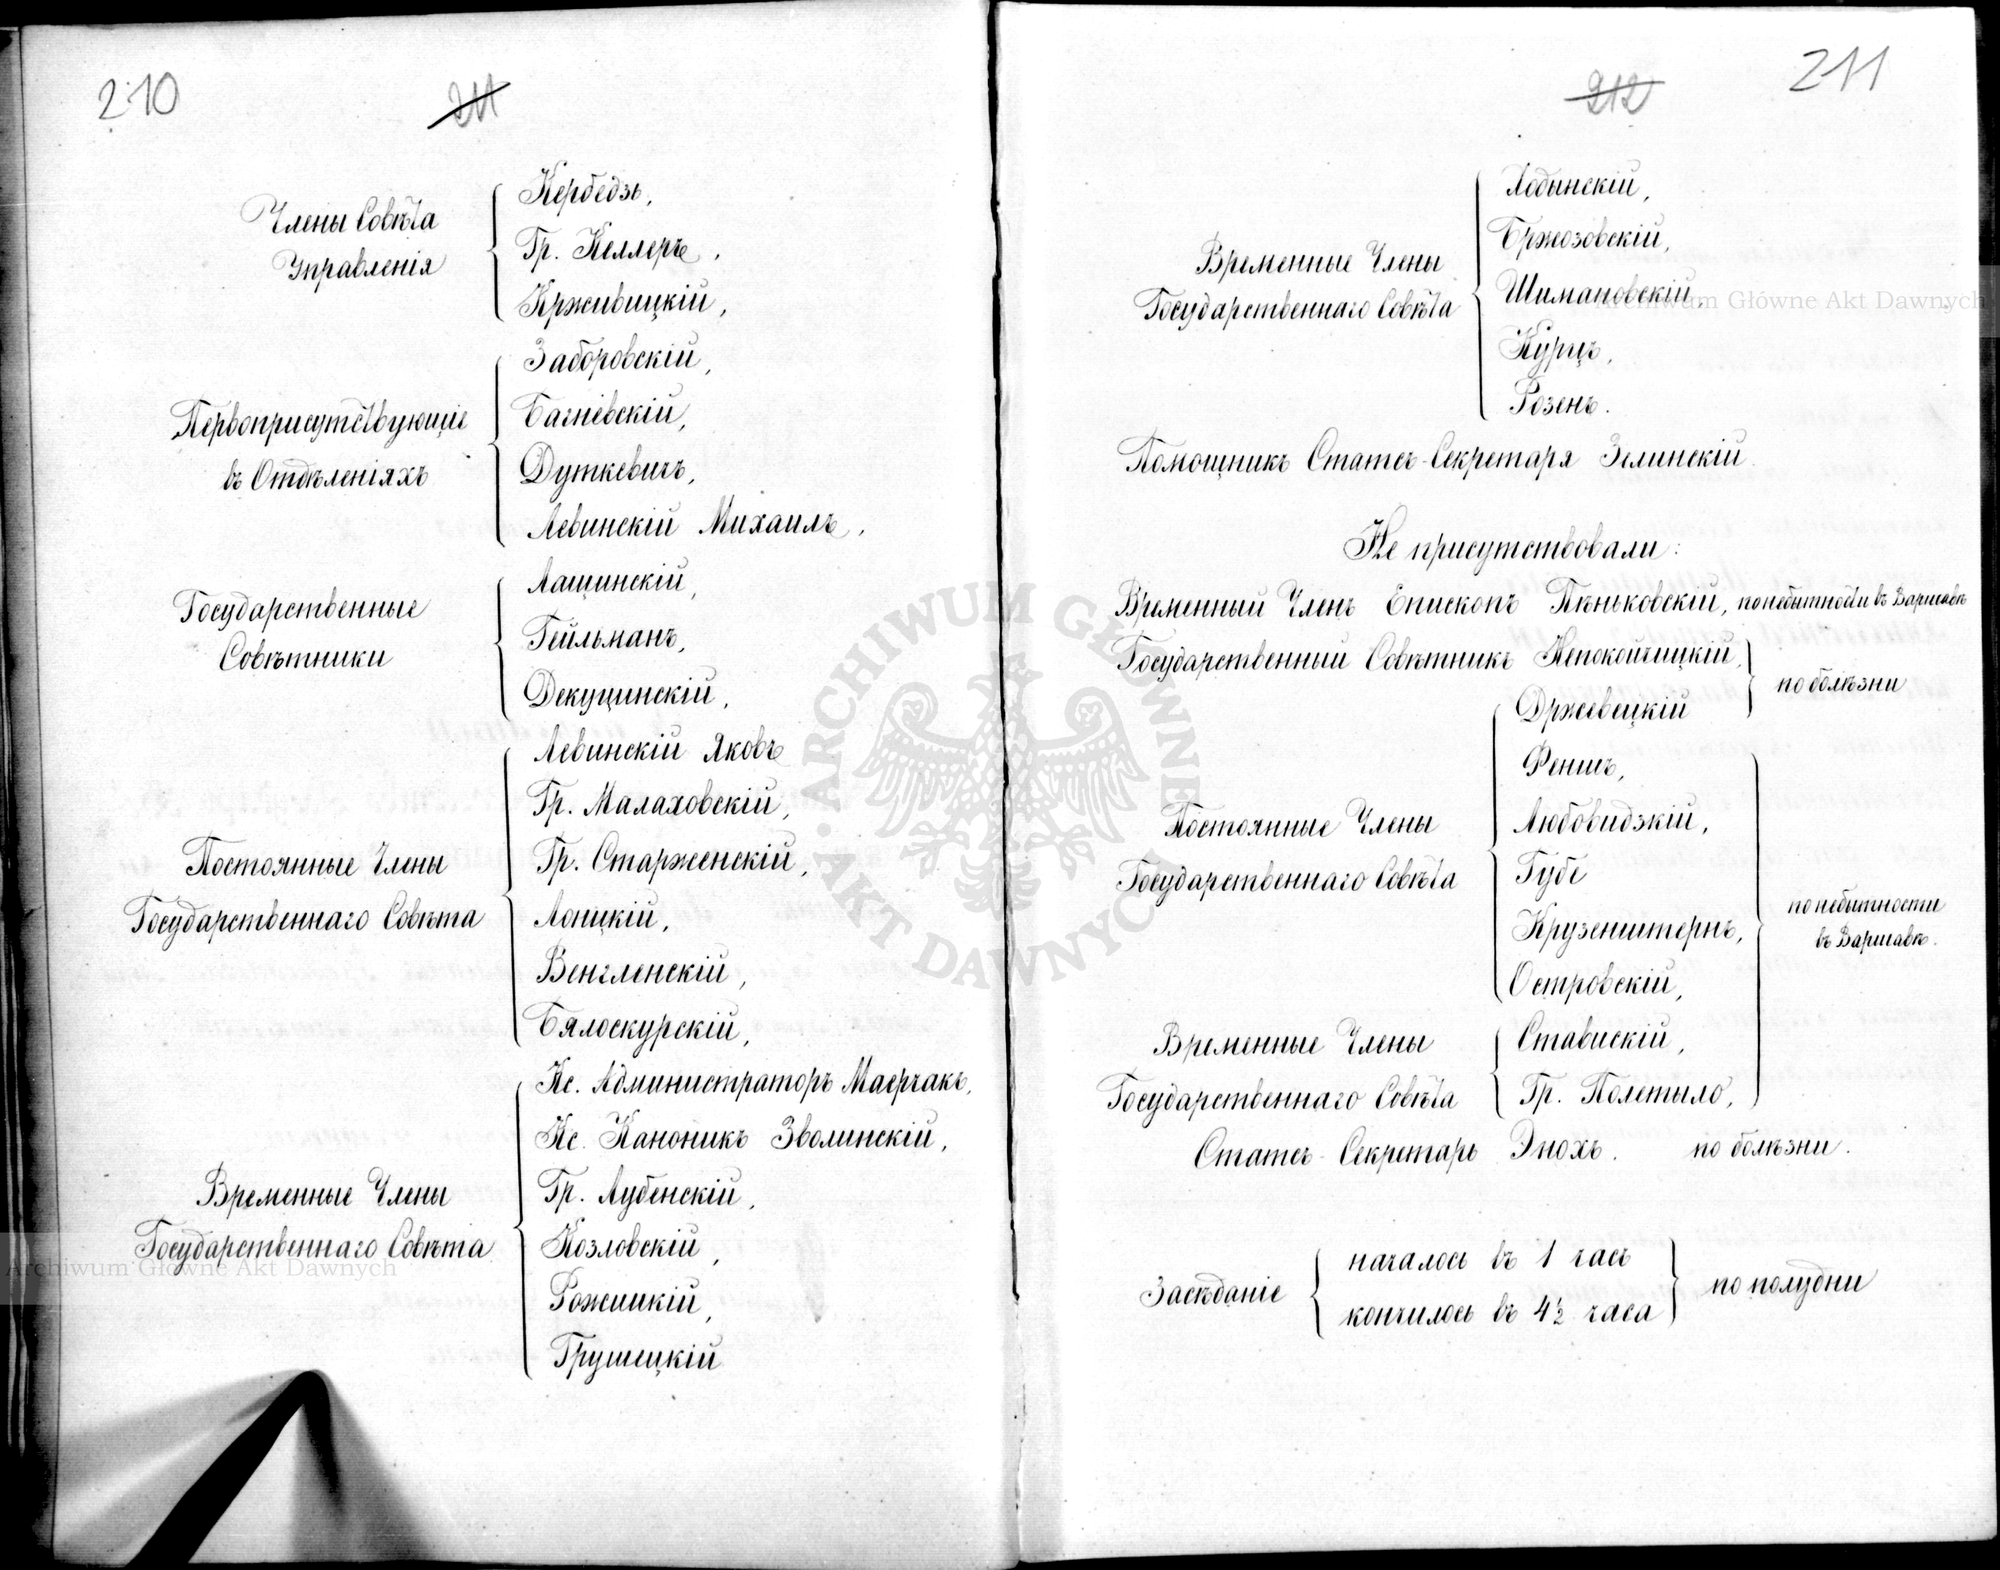 210
211
Члены Совѣта
Управленія
Кербедзъ,
Гр. Келлеръ,
Крживицкій,
Первоприсутствующіе
въ Отдѣленіяхъ
Заборовскій,
Багневскій,
Дуткевичъ,
Левинскій Михаилъ,
Государственные
Совѣтники
Лащинскій,
Гейльманъ,
Декуцинскій,
Постоянные Члены
Государственнаго Совѣта
Левинскій Яковъ
Гр. Малаховскій,
Гр. Старженскій,
Лоницкій,
Венгленскій,
Бялоскурскій,
Временные Члены
Государственнаго Совѣта
Кс. Администраторъ Маерчакъ,
Кс. Каноникъ Зволинскій,
Гр. Лубенскій,
Козловскій,
Рожишкій,
Грушецкій
Archiwum Główne Akt Dawnych
212
211
Временные Члены
Государственнаго Совѣта
Лобынскій,
Бржозовскій,
Шимановскій,
Курцъ,
Розенъ.
Archiwum Główne Akt Dawnych
Помощникъ Статсъ-Секретаря Зелинскій
Не присутствовали:
Временный Членъ Епископъ Пѣньковскій, по небытности въ Варшавѣ
Государственный Совѣтникъ Непокойчицкій,
по болѣзни
Постоянные Члены
Государственнаго Совѣта
Држевецкій
Феншъ,
Любовидзкій,
Губе
Крузенштернъ,
Островскій,
по небытности
въ Варшавѣ.
Временные Члены
Государственнаго Совѣта
Стависскій,
Гр. Полетыло,
Статсъ-Секретарь Энохъ. по болѣзни.
Засѣданіе
началось въ 1 часъ
кончилось въ 4½ часа
по полудни
ARCHIWUM GŁÓWNE AKT DAWNYCH